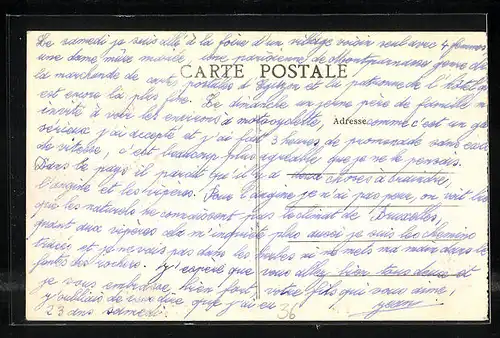 Le samedi je suis allé à la foire d'un village voisin seul avec 4 femmes
une dame mûre mariée une parisienne de Montparnasse
CARTE POSTALE
la marchande de carte postale d'Eguzon et la patronne de l'hôtel qui
est encore la plus Le dimanche un jeune père de famille m'
invite à voir les environs à motocyclette, comme c'est un gars
Adresse
sérieux j'ai accepté et j'ai fait 3 heures de promenade sans excès
de vitesse, c'est beaucoup plus agréable que je ne le pensais.
Dans le pays il paraît qu'il y a choses à craindre,
l'angine et les vipères. Pour l'angine je n'ai pas peur, on voit bien
que les naturels ne connaissent pas le climat de Bruxelles,
quant aux vipères cela m'inquiète plus aussi je suis les chemins
tracés et je ne vais pas dans les herbes ni ne mets ma main dans les
fentes des rochers. J'espère que vous allez bien tous deux et
je vous embrasse bien fort, votre fils qui vous aime,
J'oubliais de vous dire que j'ai eu Jean
23 ans samedi. 36